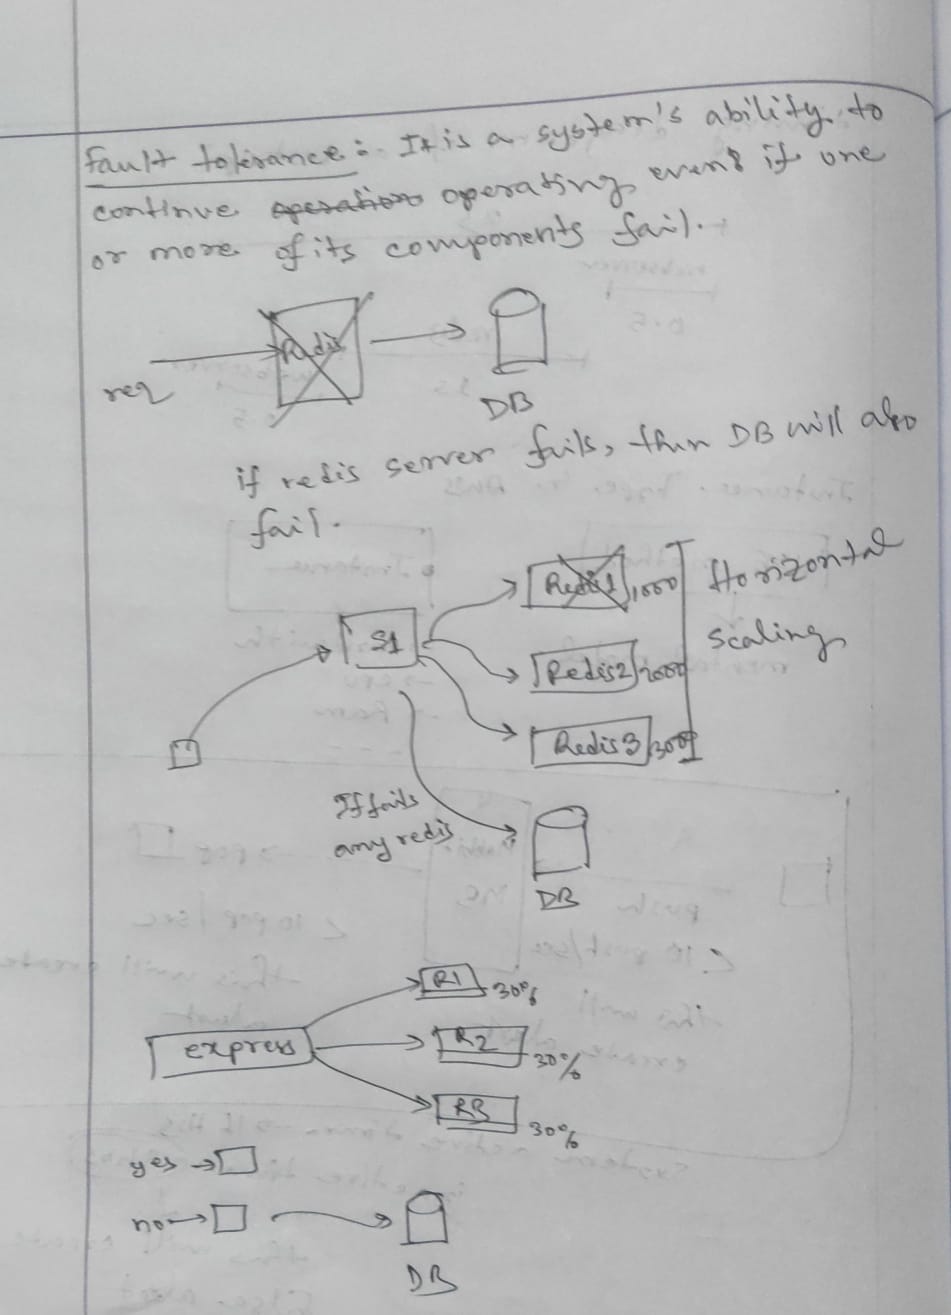 Fault tolerance :- It is a system's ability to
continue operation operating, even if one
or more of its components fail.
req
Redis
DB
if redis server fails, then DB will also
fail.
S1
Redis1 1000
Horizontal
scaling
Redis2 2000
Redis3
If fails
any redis
DB
express
R1 30%
R2 30%
R3 30%
yes →
no →
DB